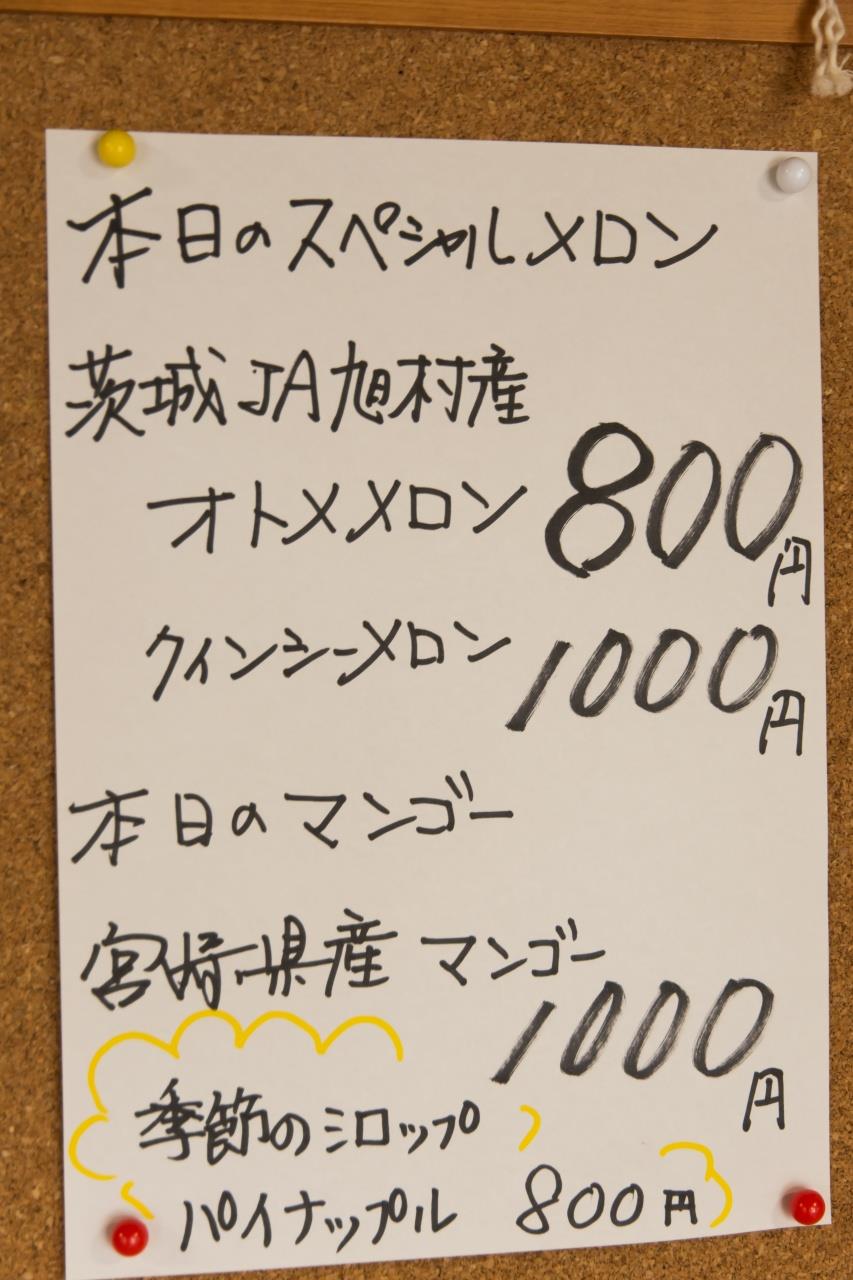 本日のスペシャルメロン
茨城JA旭村産
オトメメロン 800円
クインシーメロン 1000円
本日のマンゴー
宮崎県産 マンゴー 1000円
季節のシロップ
パイナップル 800円